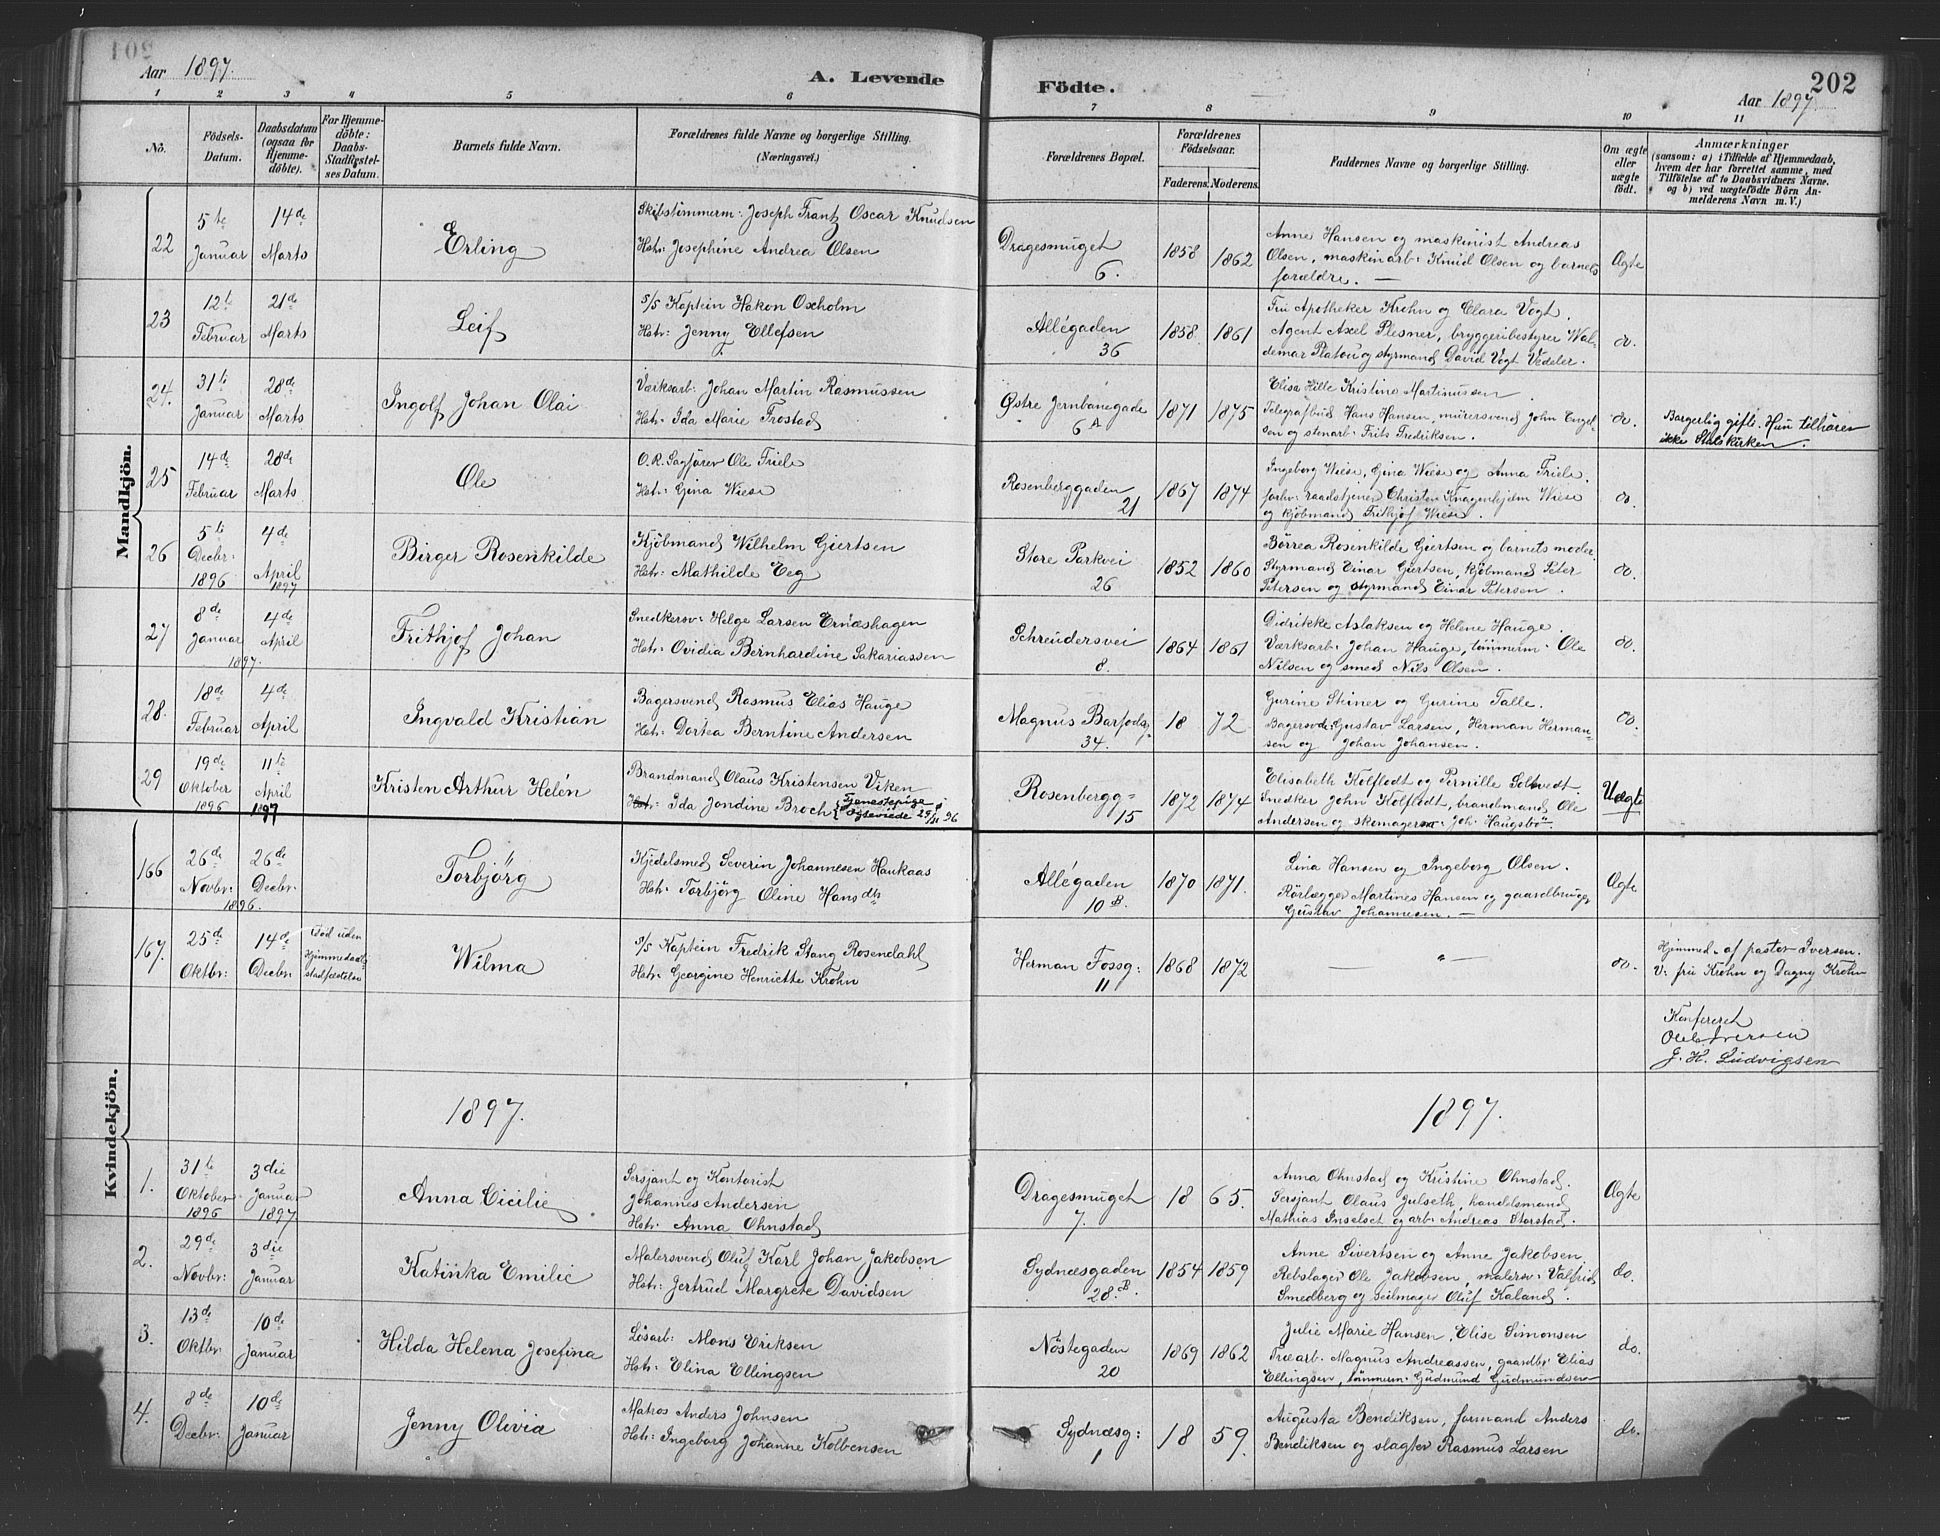 Aar 1897. A. Levende Födte. Aar 1897. 202
1 2 3 4 5 6 7 8 9 10 11
No. Födsels-Datum. Daabsdatum (ogsaa for Hjemmedöbte). For Hjemmedöbte: Daabs-Stadfæstelses Datum. Barnets fulde Navn. Forældrenes fulde Navne og borgerlige Stilling. (Næringsvei.) Forældrenes Bopæl. Forældrenes Födselsaar. Faderens. Moderens. Faddernes Navne og borgerlige Stilling. Om ægte eller uægte födt. Anmærkninger (saasom: a) i Tilfælde af Hjemmedaab, hvem der har forrettet samme, med Tilföielse af to Daabsvidners Navne, og b) ved uægtefödte Börn Anmelderens Navn m. V.)
Mandkjön.
22 5te Januar 14de Marts Erling
Skibstimmerm: Joseph Frantz Oscar Knudsen
Hstr: Josephine Andrea Olsen
Dragesmuget 6. 1858 1862
Anne Hansen og maskinist Andreas
Olsen, maskinarb: Knud Olsen og barnets
forældre. —
Ægte
23 12te Februar 21de Marts Leif
S/S Kaptein Hakon Oxholm
Hstr: Jenny Ellefsen
Allégaden 36 1858 1861
Fru Apotheker Krohn og Clara Vogt.
Agent Axel Plesner, bryggeribestyrer Wal-
demar Platou og styrmand David Vogt Vedeler.
do.
24. 31te Januar 28de Marts Ingolf Johan Olai
Værksarb: Johan Martin Rasmussen
Hstr: Ida Marie Frostad
Østre Jernbanegade 6A 1871 1875
Elisa Hille Kristine Martinussen.
Telegrafbud Hans Hansen, murersvend John Engel-
sen og stenarb: Frits Fredriksen.
do.
Borgerlig gifte. Hun tilhører
ikke Statskirken.
25 14de Februar 28de Marts Ole
O.R.Sagfører Ole Friele
Hstr: Gina Wiese
Rosenberggaden 21 1867 1874
Ingeborg Wiese, Gina Wiese og Anna Friele.
forhv: raadstjener Christen Knagenhjelm Wiese
og kjöbmand Frithjof Wiese.
do.
26 5te Decbr: 1896 4de April 1897 Birger Rosenkilde
Kjöbmand Wilhelm Gjertsen
Hstr: Mathilde Eeg
Store Parkvei 26 1852 1860
Börrea Rosenkilde Gjertsen og barnets moder.
Styrmand Einar Gjertsen, kjöbmand Peter
Petersen og styrmand Einar Petersen.
do.
27 8de Januar 1897. 4de April Frithjof Johan
Snedkersv: Helge Larsen Ernæshagen
Hstr: Ovidia Bernhardine Sakariassen
Schreudersvei 8. 1864 1861
Didrikke Aslaksen og Helene Hauge.
Værksarb: Johan Hauge, tömmerm: Ole
Nilsen og smed Nils Olsen.
do.
28. 18de Februar 4de April Ingvald Kristian
Bagersvend Rasmus Elias Hauge
Hstr: Dortea Berntine Andersen
Magnus Barfodsg 34. 18 72.
Gurine Steiner og Gurine Talle.
Bagersvde: Gustav Larsen, Herman Herman-
sen og Johan Johansen.
do.
29 19de Oktober 1896 11te April 1897 Kristen Arthur Helén
Brandmand Olaus Kristensen Viken
Hstr: Ida Jondine Broch Tjenestepige
Rosenbergg= 15 1872 1874
Elisabeth Kolflodt og Pernille Soltvedt
Snedker John Kolflodt, brandmand Ole
Andersen og skomagerm: Joh: Haugsbö.
Uægte
Kvindekjön.
166 26de Novbr: 26de Decbr. 1896. Torbjörg
Kjedelsmed Severin Johannesen Haukaas
Hstr: Torbjörg Oline Hansdtr
Allégaden 10B. 1870 1871.
Lina Hansen og Ingeborg Olsen.
Rörlægger Martines Hansen og gaardbruger
Gustav Johannesen. —
Ægte
167. 25de Oktbr: 14de Decbr. Död uden Hjemmedaabs stadfæstelse Wilma
S/S Kaptein Fredrik Stang Rosendahl
Hstr: Georgine Henriette Krohn
Herman Fossg: 11 1868 1872
— " — do.
Hjemmed. af pastor Iversen.
V: fru Krohn og Dagny Krohn
Konfereret
J. H. Ludvigsen
1897. 1897.
1. 31te Oktober 1896 3die Januar 1897 Anna Cicilie
Sersjant og Kontorist
Johannes Andersen
Hstr: Anna Ohnstad
Dragesmuget 7. 18 65.
Anna Ohnstad og Kristine Ohnstad.
Sersjant Olaus Julseth, handelsmand
Mathias Inselset og arb: Andreas Storstad.
Ægte
2. 29de Novbr: 3die Januar Katinka Emilie
Malersvend Oluf Karl Johan Jakobsen
Hstr: Jertrud Margrete Davidsen
Sydnæsgaden 28.B. 1854 1859
Anne Sivertsen og Anne Jakobsen
Rebslager Ole Jakobsen, malersv: Valfrid
Smedberg og seilmager Oluf Kaland.
do.
3. 13de Oktbr: 10de Januar Hilda Helena Josefina
Lösarb: Mons Eriksen
Hstr: Elina Ellingsen
Nöstegaden 20 1869 1862
Julie Marie Hansen, Elise Simonsen
Træarb. Magnus Andreassen, gaardbr: Elias
Ellingsen, tömmerm: Gudmund Gudmundsen
do.
4. 8de Decbr: 10de Januar Jenny Olivia
Matros Anders Johnsen
Hstr: Ingeborg Johanne Kolbensen
Sydnæsg: 1 18 59.
Augusta Bendiksen, formand Anders
Bendiksen og slagter Rasmus Larsen
do.